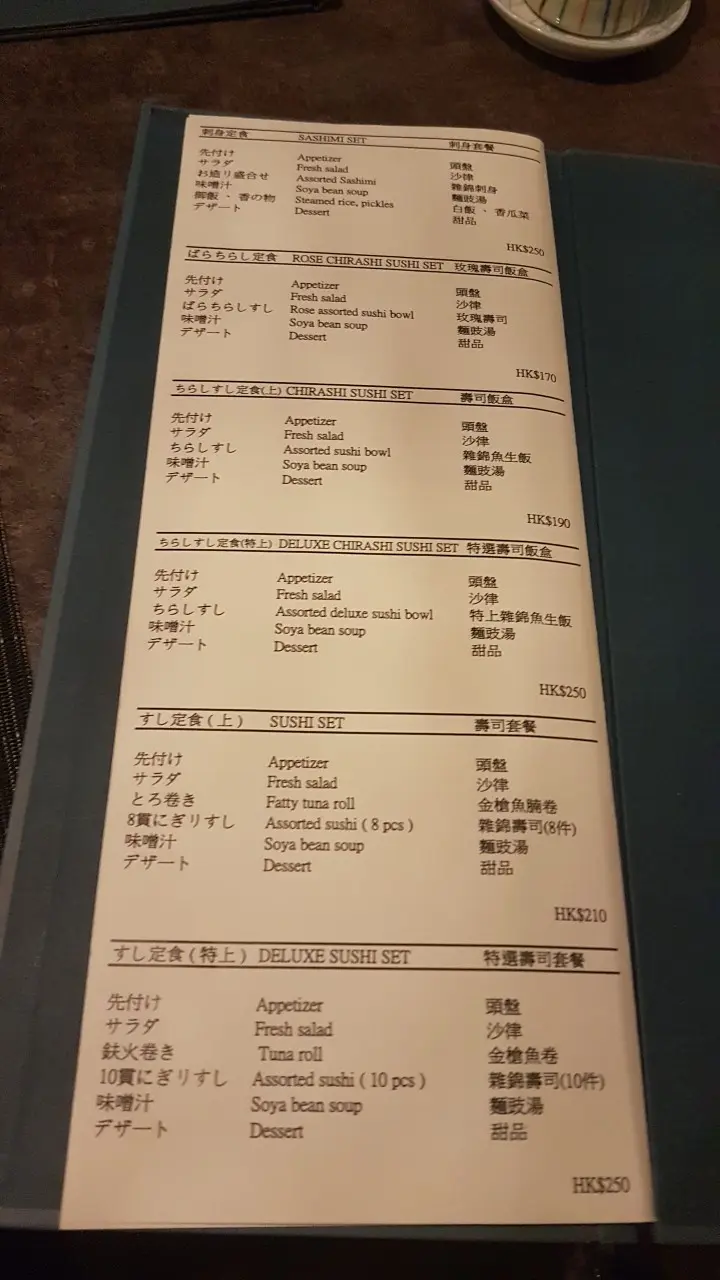 刺身定食 SASHIMI SET 刺身套餐
先付け Appetizer 頭盤
サラダ Fresh salad 沙律
お造り盛合せ Assorted Sashimi 雜錦刺身
味噌汁 Soya bean soup 麵豉湯
御飯、香の物 Steamed rice, pickles 白飯、香瓜菜
デザート Dessert 甜品
HK$250
ばらちらし定食 ROSE CHIRASHI SUSHI SET 玫瑰壽司飯盒
先付け Appetizer 頭盤
サラダ Fresh salad 沙律
ばらちらしすし Rose assorted sushi bowl 玫瑰壽司
味噌汁 Soya bean soup 麵豉湯
デザート Dessert 甜品
HK$170
ちらしすし定食(上) CHIRASHI SUSHI SET 壽司飯盒
先付け Appetizer 頭盤
サラダ Fresh salad 沙律
ちらしすし Assorted sushi bowl 雜錦魚生飯
味噌汁 Soya bean soup 麵豉湯
デザート Dessert 甜品
HK$190
ちらしすし定食(特上) DELUXE CHIRASHI SUSHI SET 特選壽司飯盒
先付け Appetizer 頭盤
サラダ Fresh salad 沙律
ちらしすし Assorted deluxe sushi bowl 特上雜錦魚生飯
味噌汁 Soya bean soup 麵豉湯
デザート Dessert 甜品
HK$250
すし定食(上) SUSHI SET 壽司套餐
先付け Appetizer 頭盤
サラダ Fresh salad 沙律
とろ巻き Fatty tuna roll 金槍魚腩卷
8貫にぎりすし Assorted sushi ( 8 pcs ) 雜錦壽司(8件)
味噌汁 Soya bean soup 麵豉湯
デザート Dessert 甜品
HK$210
すし定食(特上) DELUXE SUSHI SET 特選壽司套餐
先付け Appetizer 頭盤
サラダ Fresh salad 沙律
鉄火巻き Tuna roll 金槍魚卷
10貫にぎりすし Assorted sushi ( 10 pcs ) 雜錦壽司(10件)
味噌汁 Soya bean soup 麵豉湯
デザート Dessert 甜品
HK$250